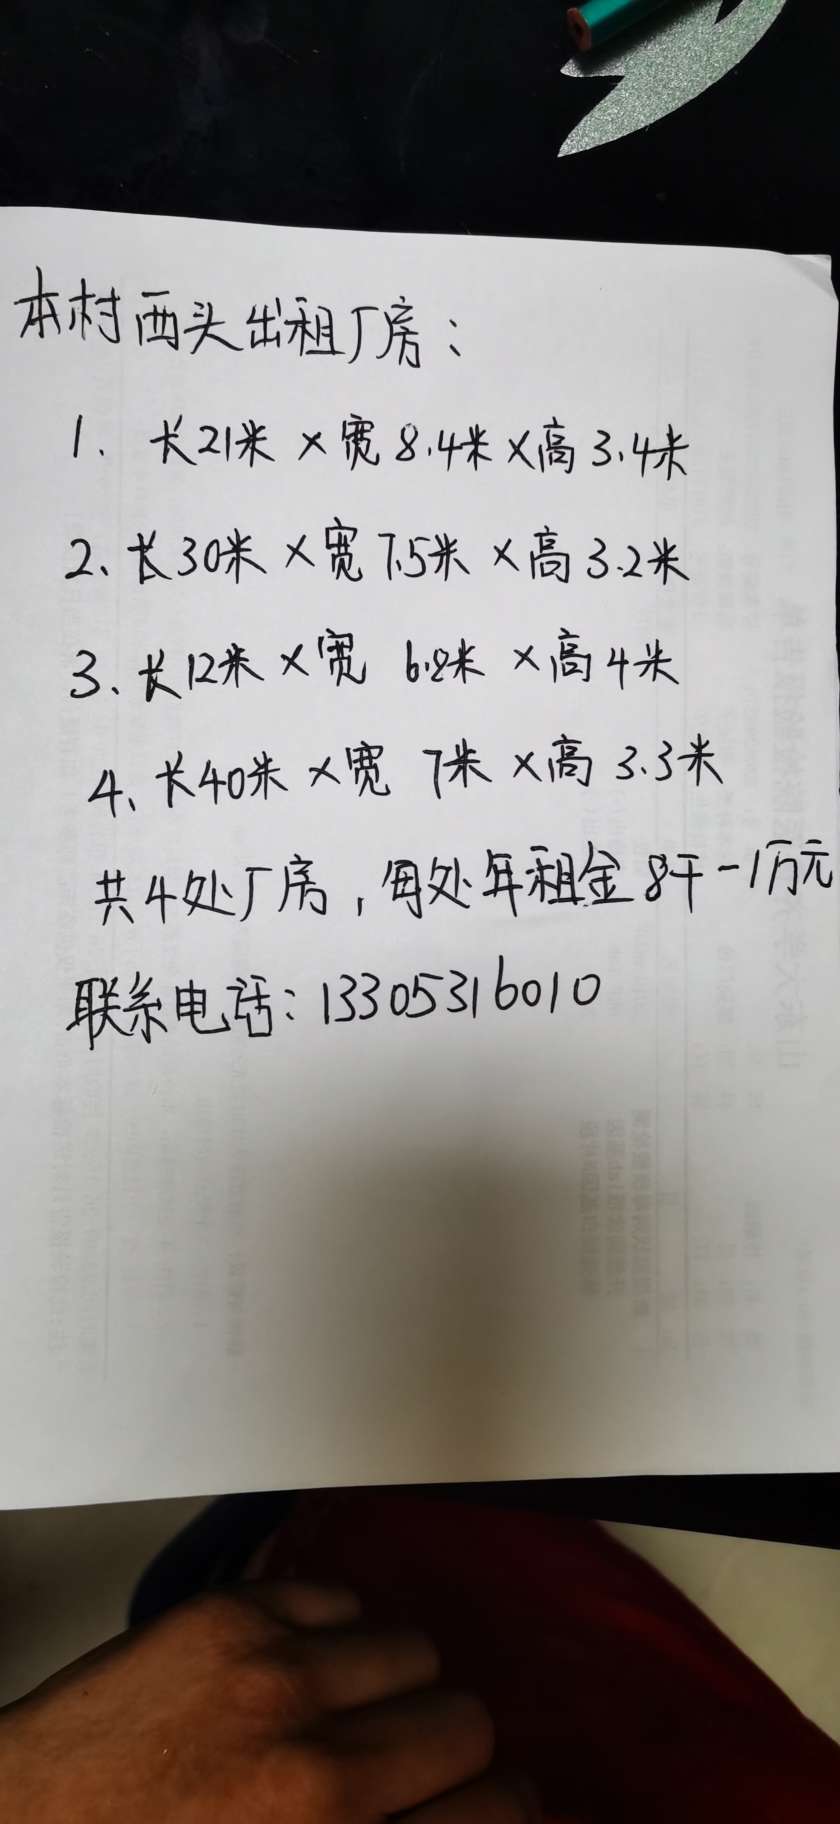 本村西头出租厂房：
1、长21米×宽8.4米×高3.4米
2、长30米×宽7.5米×高3.2米
3、长12米×宽 6.8米×高4米
4、长40米×宽 7米×高3.3米
共4处厂房，每处年租金8千-1万元
联系电话：13305316010